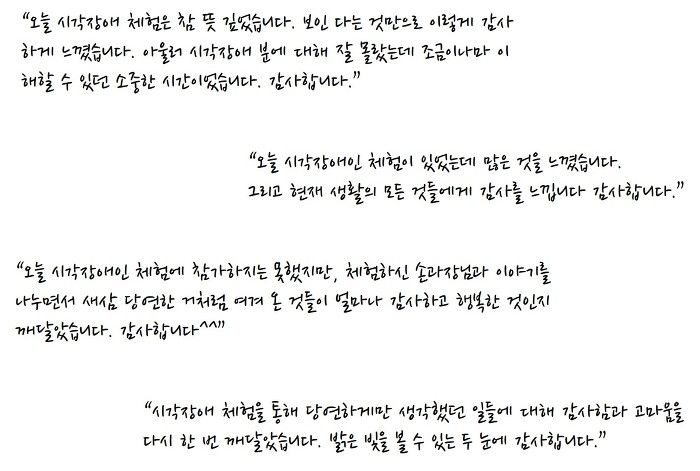 “오늘 시각장애 체험은 참 뜻 깊었습니다. 보인 다는 것만으로 이렇게 감사
하게 느꼈습니다. 아울러 시각장애 분에 대해 잘 몰랐는데 조금이나마 이
해할 수 있던 소중한 시간이었습니다. 감사합니다.”
“오늘 시각장애인 체험이 있었는데 많은 것을 느꼈습니다.
그리고 현재 생활의 모든 것들에게 감사를 느낍니다 감사합니다.”
“오늘 시각장애인 체험에 참가하지는 못했지만, 체험하신 손과장님과 이야기를
나누면서 새삼 당연한 거처럼 여겨 온 것들이 얼마나 감사하고 행복한 것인지
깨달았습니다. 감사합니다^^”
“시각장애 체험을 통해 당연하게만 생각했던 일들에 대해 감사함과 고마움을
다시 한 번 깨달았습니다. 밝은 빛을 볼 수 있는 두 눈에 감사합니다.”